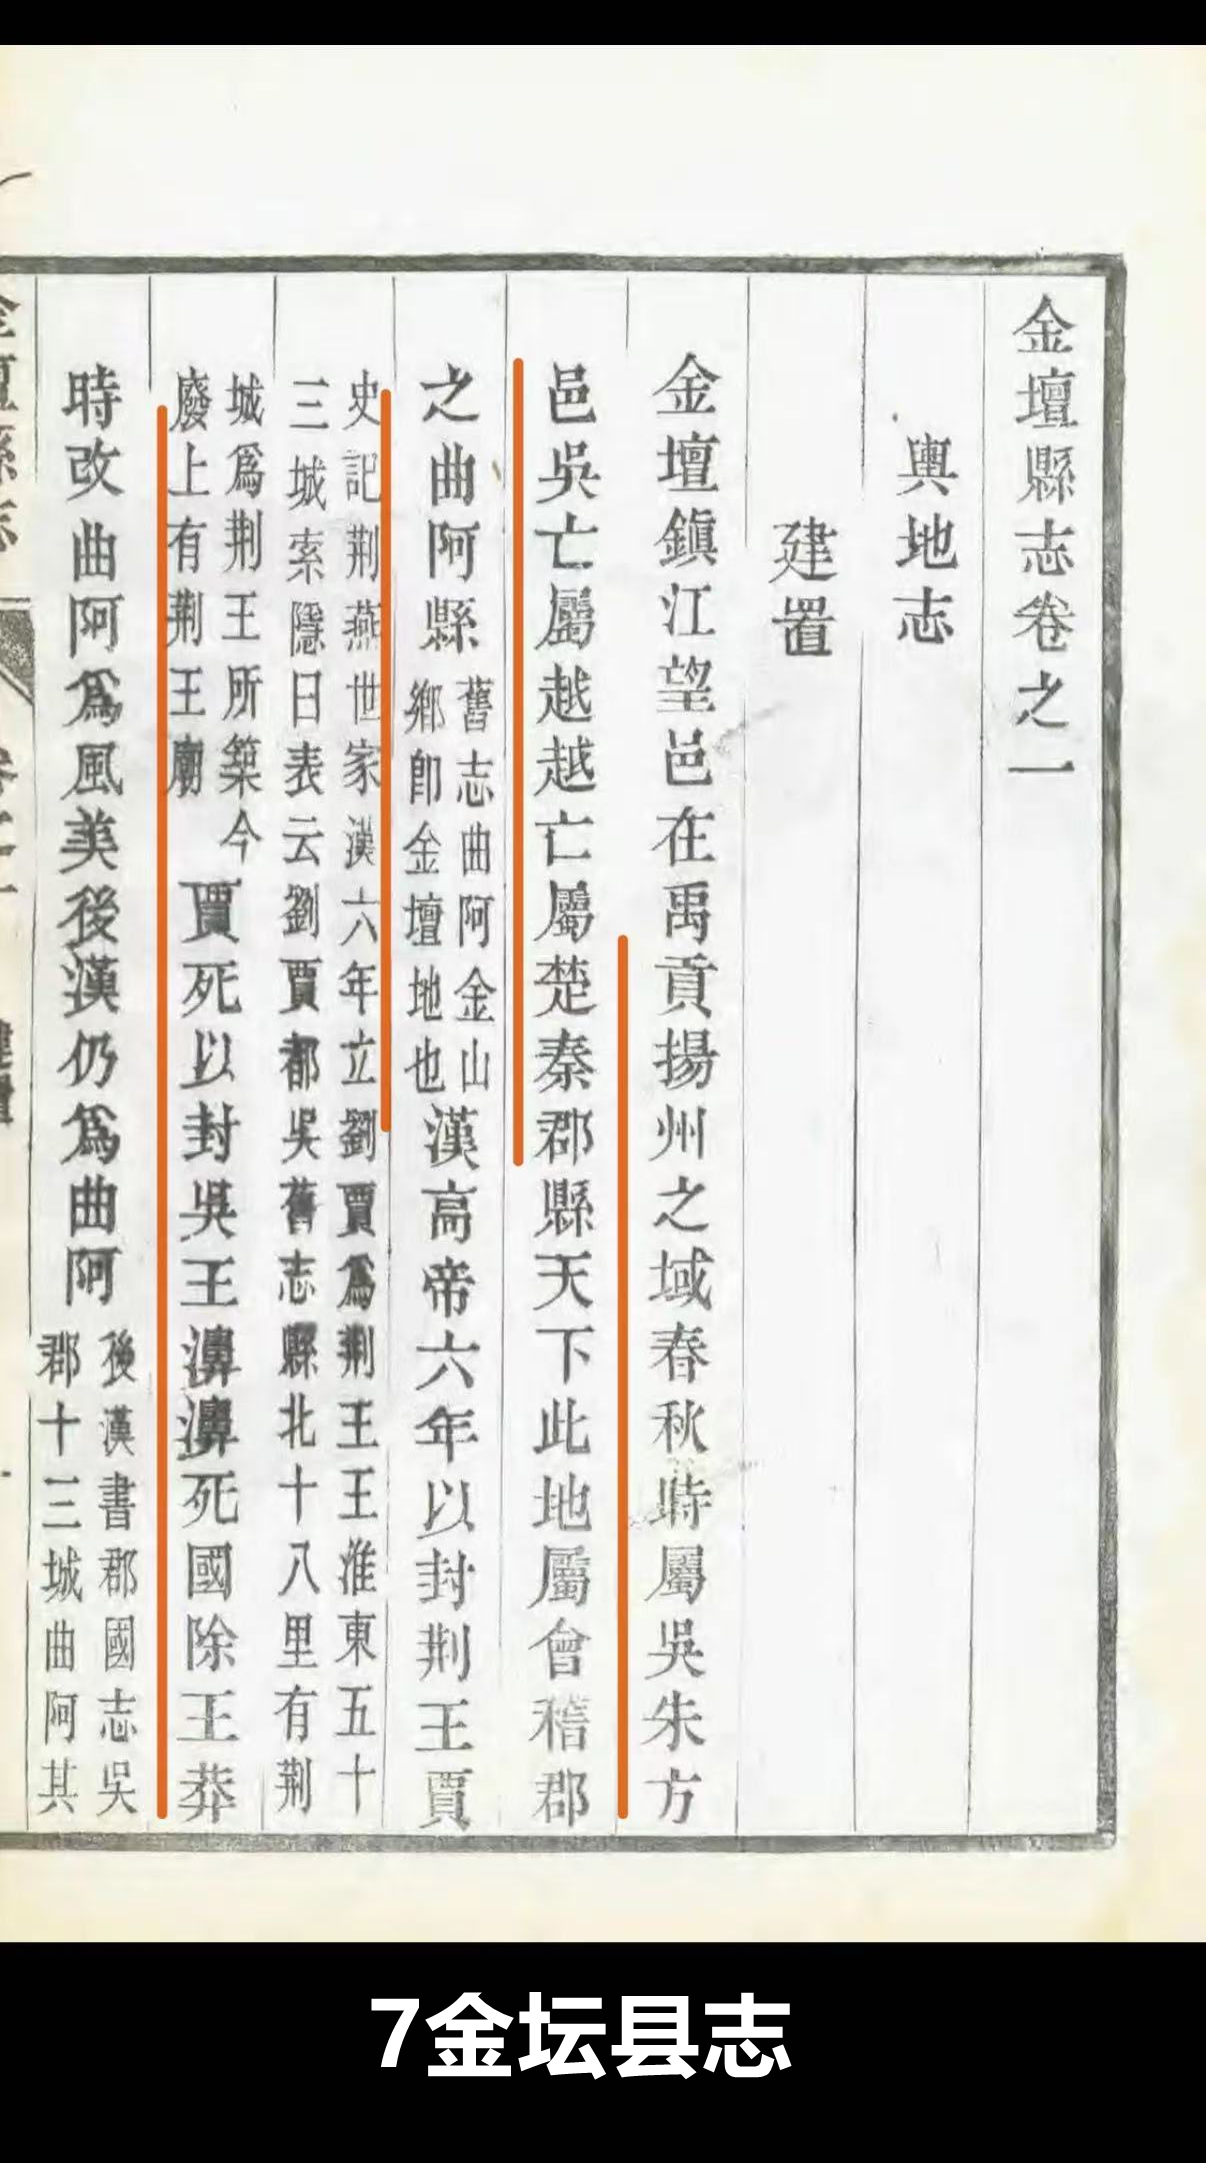 金壇縣志卷之一
輿地志
建置
金壇鎭江望邑在禹貢揚州之域春秋時屬吳朱方
邑吳亡屬越越亡屬楚秦郡縣天下此地屬會稽郡
之曲阿縣
舊志曲阿金山
鄉卽金壇地也
漢高帝六年以封荆王賈
史記荆燕世家漢六年立劉賈爲荆王王淮東五十
三城索隱曰表云劉賈都吳舊志縣北十八里有荆
城爲荆王所築今
廢上有荆王廟
賈死以封吳王濞濞死國除王莽
時改曲阿爲風美後漢仍爲曲阿
後漢書郡國志吳
郡十三城曲阿其
7金坛县志